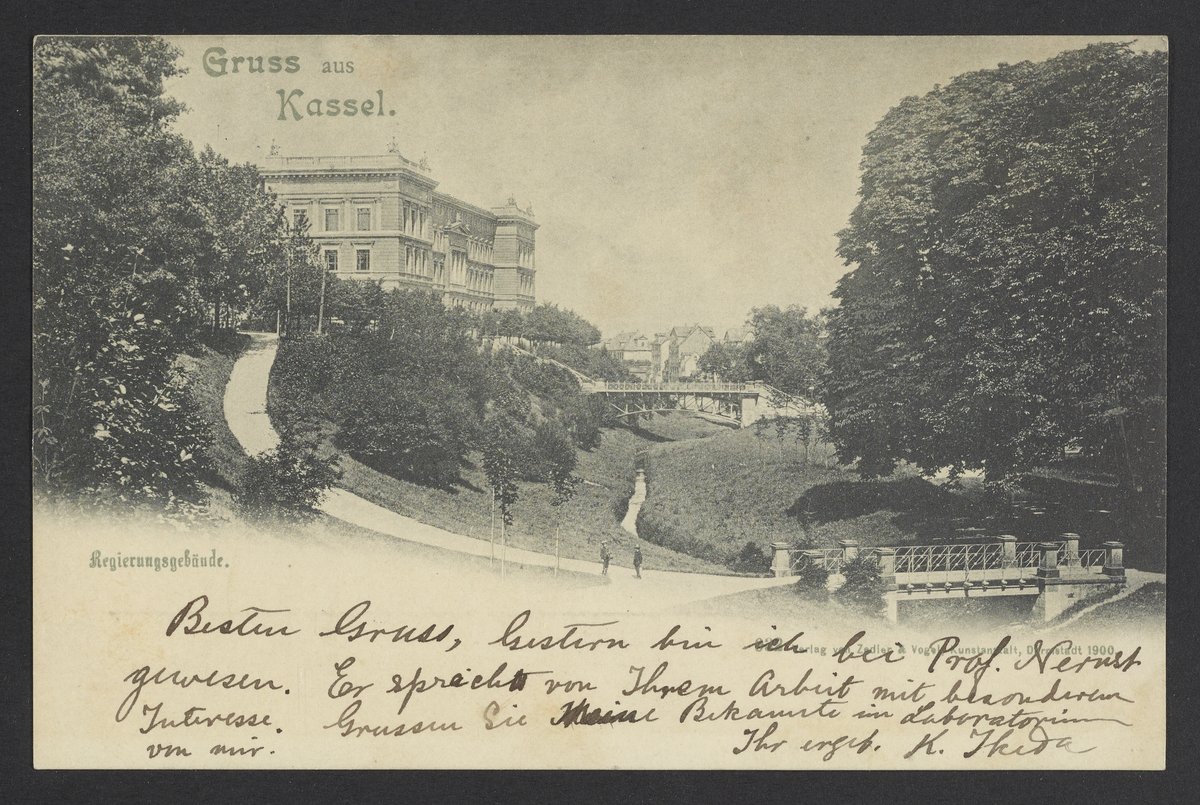 Gruss aus
Kassel.
Regierungsgebäude.
Verlag von Zedler & Vogel, Kunstanstalt, Darmstadt 1900.
Besten Gruss, Gestern bin ich bei Prof. Nernst
gewesen. Er spricht von Ihrem Arbeit mit besonderem
Interesse. Grussen Sie Meine Bekannte im Laboratorium
von mir.
Ihr ergeb. K. Ikeda